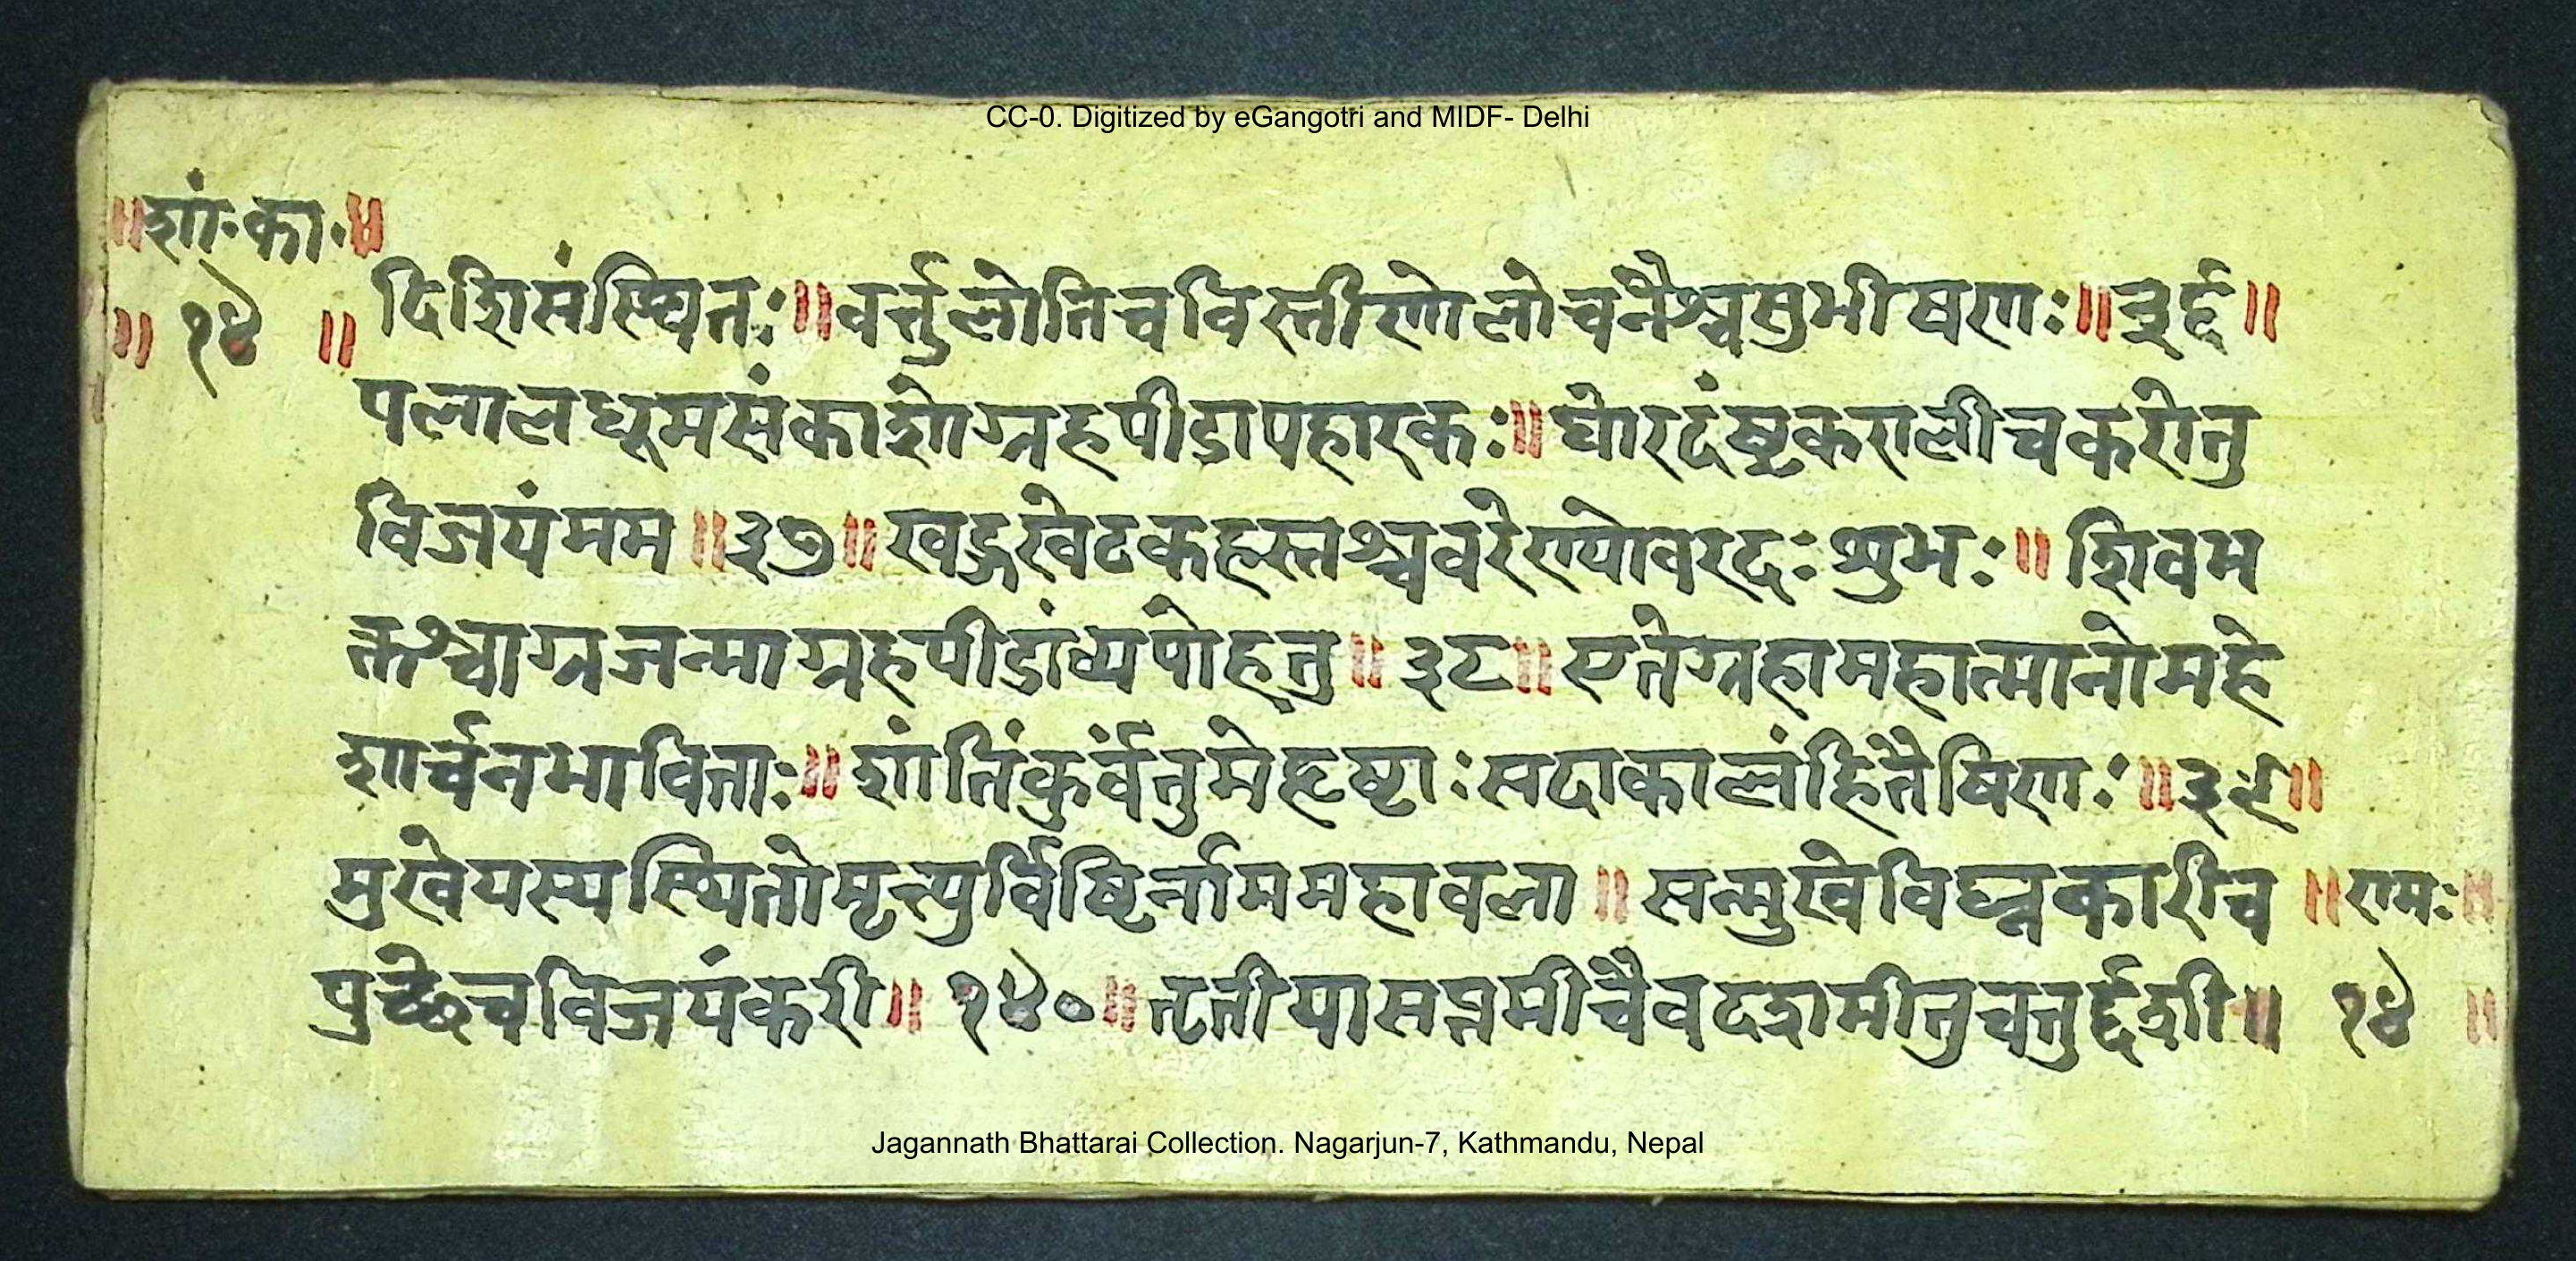 CC-0. Digitized by eGangotri and MIDF- Delhi
॥शां॰का॰॥
॥ १४ ॥
दिशिसंस्थितः॥वर्त्तुलोतिचविस्तीर्णोलोचनैश्चसुभीषणः॥३६॥
पलालधूमसंकाशोग्रहपीडापहारकः॥घोरदंष्ट्रकरालीचकरोतु
विजयंमम॥३७॥खड्गखेटकहस्तश्चवरेण्योवरदःशुभः॥शिवभ
क्तश्चाग्रजन्माग्रहपीडांव्यपोहतु॥३८॥एतेग्रहामहात्मानोमहे
शार्चनभाविताः॥शांतिंकुर्वंतुमेहृष्टाःसदाकालंहितैषिणः॥३९॥
मुखेयस्यस्थितोमृत्युर्विष्टिर्नाममहावला॥सन्मुखेविघ्नकारीच
पुच्छेचविजयंकरी॥१४०॥तृतीयासप्तमीचैवदशमीतुचतुर्द्दशी॥
॥रामः॥
१४ ॥
Jagannath Bhattarai Collection. Nagarjun-7, Kathmandu, Nepal